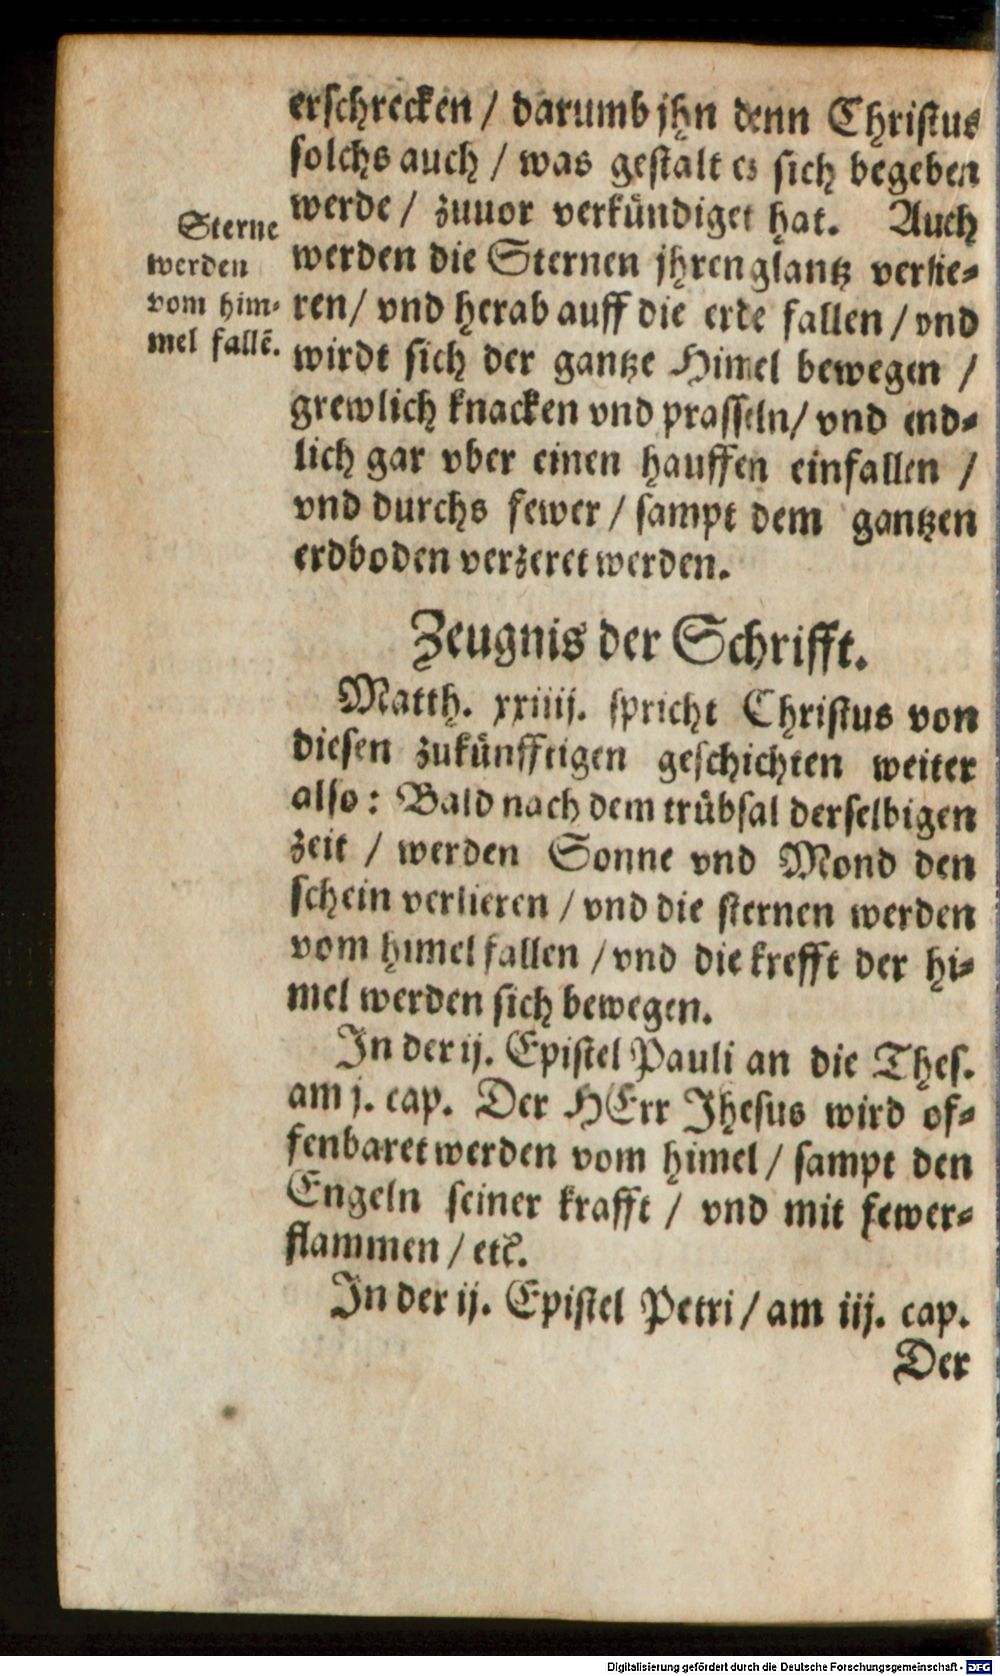 erschrecken / darumb jhn denn Christus
solchs auch / was gestalt es sich begeben
werde / zuuor verkündiget hat. Auch
werden die Sternen jhren glantz verlie-
ren / vnd herab auff die erde fallen / vnd
wirdt sich der gantze Himel bewegen /
grewlich knacken vnd prasseln / vnd end-
lich gar vber einen hauffen einfallen /
vnd durchs fewer / sampt dem gantzen
erdboden verzeret werden.
Sterne
werden
vom him-
mel fallē.
Zeugnis der Schrifft.
Matth. xxiiij. spricht Christus von
diesen zukünfftigen geschichten weiter
also: Bald nach dem trübsal derselbigen
zeit / werden Sonne vnd Mond den
schein verlieren / vnd die sternen werden
vom himel fallen / vnd die krefft der hi-
mel werden sich bewegen.
In der ij. Epistel Pauli an die Thes.
am j. cap. Der HErr Jhesus wird of-
fenbaret werden vom himel / sampt den
Engeln seiner krafft / vnd mit fewer-
flammen / etc.
In der ij. Epistel Petri / am iij. cap.
Der
Digitalisierung gefördert durch die Deutsche Forschungsgemeinschaft - DFG